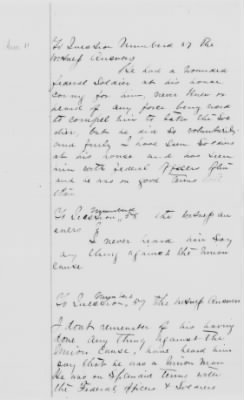 To Question Numberd 27 the
witness Answers
He had a wounded
federal Soldier at his house
caring for him, never knew or
heard of any force being used
to compel him to take the Sol
dier, but he did so voluntarily
and freely I have seen Soldiers
at his house and have seen
him with Federal Officers often
and he was on good terms with
them
To Question, Numberd 28 the witness an
swers
I never heard him Say
any thing against the Union
Cause
To Question, Numberd 29 the witness Answers
I dont remember of his having
done any thing against the
Union Cause, I have heard him
say that he was a Union man
He was on Splendid terms with
the Federal officers & Soldiers